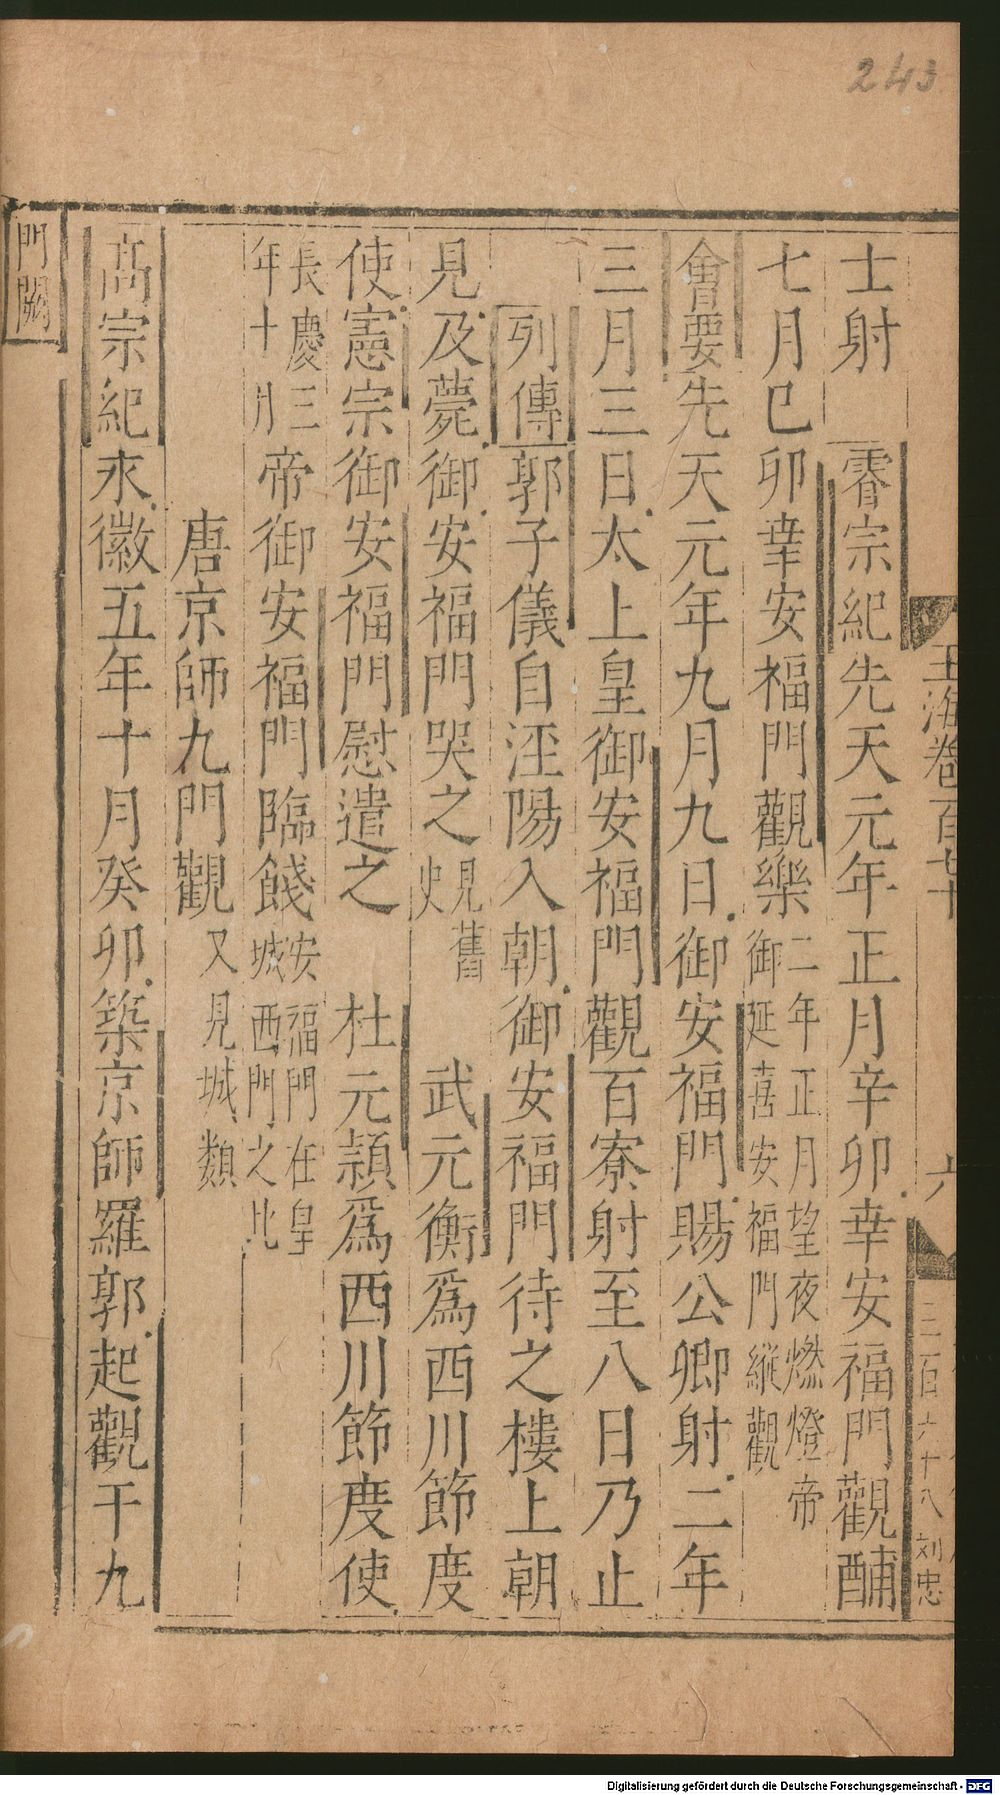 243
玉海卷百七十
六
三百六十八
刘忠
士射　睿宗紀先天元年正月辛卯幸安福門觀酺
七月己卯幸安福門觀樂二年正月望夜燃燈帝御延喜安福門縱觀
會要先天元年九月九日御安福門賜公卿射二年
三月三日太上皇御安福門觀百寮射至八日乃止
列傳郭子儀自涇陽入朝御安福門待之樓上朝
見及薨御安福門哭之見舊史　武元衡爲西川節度
使憲宗御安福門慰遣之　杜元潁爲西川節度使
長慶三年十月帝御安福門臨餞安福門在皇城西門之北
唐京師九門觀又見城類
高宗紀永徽五年十月癸卯築京師羅郭起觀于九
門闕
Digitalisierung gefördert durch die Deutsche Forschungsgemeinschaft - DFG